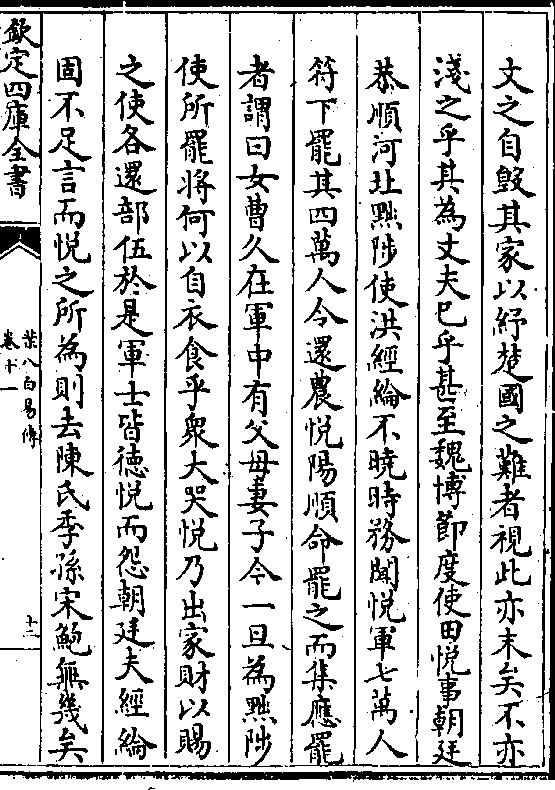 文之自毀其家以紓楚國之難者視此亦末矣不亦
淺之乎其為丈夫已乎甚至魏博節度使田悅事朝廷
恭順河北黜陟使洪經綸不曉時務聞悅軍七萬人
符下罷其四萬人令還農悅陽順命罷之而集應罷
者謂曰女曹久在軍中有父母妻子今一旦為黜陟
使所罷將何以自衣食乎衆大哭悅乃出家財以賜
之使各還部伍於是軍士皆徳悅而怨朝廷夫經綸
固不足言而悅之所為則去陳氏季孫宋鮑無幾矣
欽定四庫全書
葉八白易傳
卷十一
十三